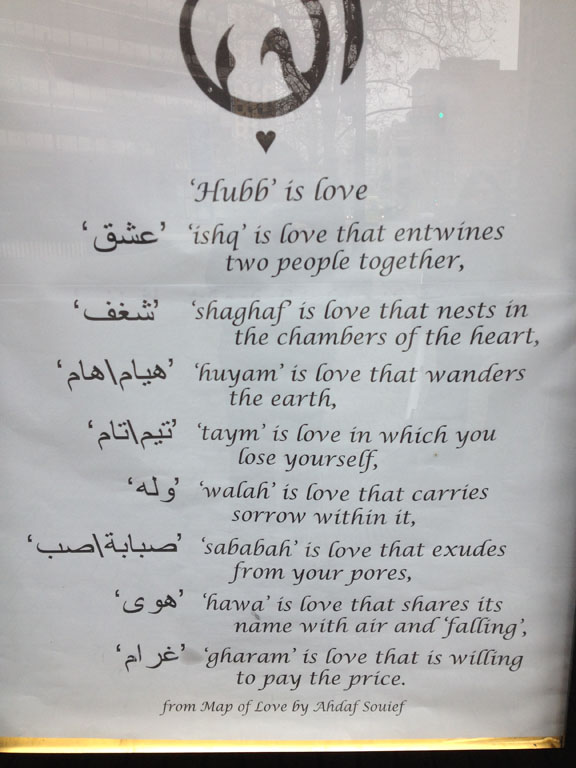 'Hubb' is love
'عشق' 'ishq' is love that entwines
two people together,
'شغف' 'shaghaf' is love that nests in
the chambers of the heart,
'هيام\هام' 'huyam' is love that wanders
the earth,
'تيم\تام' 'taym' is love in which you
lose yourself,
'وله' 'walah' is love that carries
sorrow within it,
'صبابة\صب' 'sababah' is love that exudes
from your pores,
'هوى' 'hawa' is love that shares its
name with air and 'falling',
'غرام' 'gharam' is love that is willing
to pay the price.
from Map of Love by Ahdaf Souief